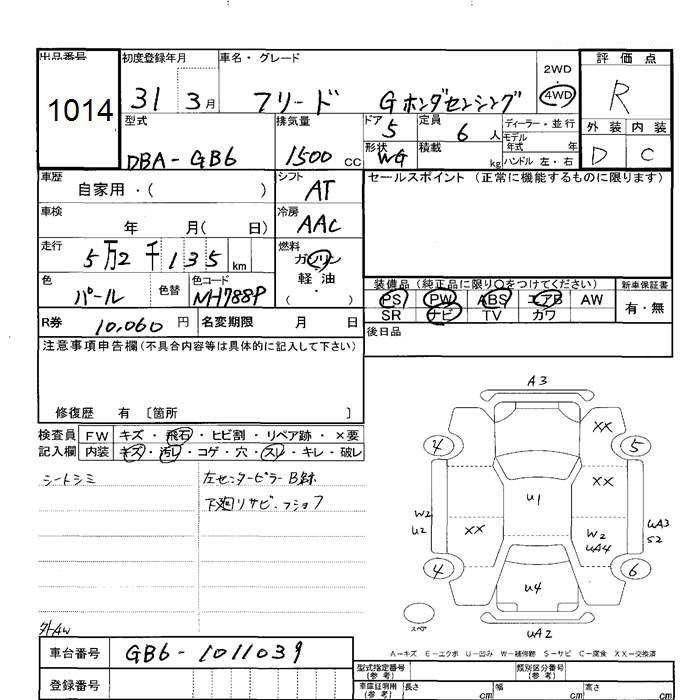 出品番号 初度登録年月 車名・グレード 2WD 評価点
1014 31 3月 フリード Gホンダセンシング 4WD R
型式 排気量 ドア 5 定員 6人 ディーラー・並行 外装 内装
モデル年式 年
DBA-GB6 1500cc 形状 WG 積載 kg ハンドル 左・右 D C
車歴 自家用・( ) シフト AT セールスポイント(正常に機能するものに限ります)
車検 年 月( 日) 冷房 AAC
走行 5万2千135km 燃料 ガソリン
軽油
( ・ )
色 パール 色替 色コード NH788P
装備品(純正品に限り○をつけてください) 新車保証書
PS PW ABS エアB AW 有・無
SR ナビ TV カワ
R券 10,060円 名変期限 月 日
後日品
注意事項申告欄(不具合内容等は具体的に記入して下さい)
修復歴 有 〔箇所 〕
検査員 FW キズ・飛石・ヒビ割・リペア跡・×要
記入欄 内装 キズ・汚レ・コゲ・穴・スレ・キレ・破レ
シートシミ 左センターピラーB跡
下廻りサビ・
外AW
A3
XX
4 5
XX
U1
W2
U2
XX
W2
UA4
UA3
S2
4 6
U4
スペア
UA2
A-キズ E-エクボ U-凹み W-補修跡 S-サビ C-腐食 XX-交換済
車台番号 GB6-1011039
登録番号
型式指定番号(参考) 類別区分番号(参考)
車庫証明用(参考) 長さ cm 幅 cm 高さ cm